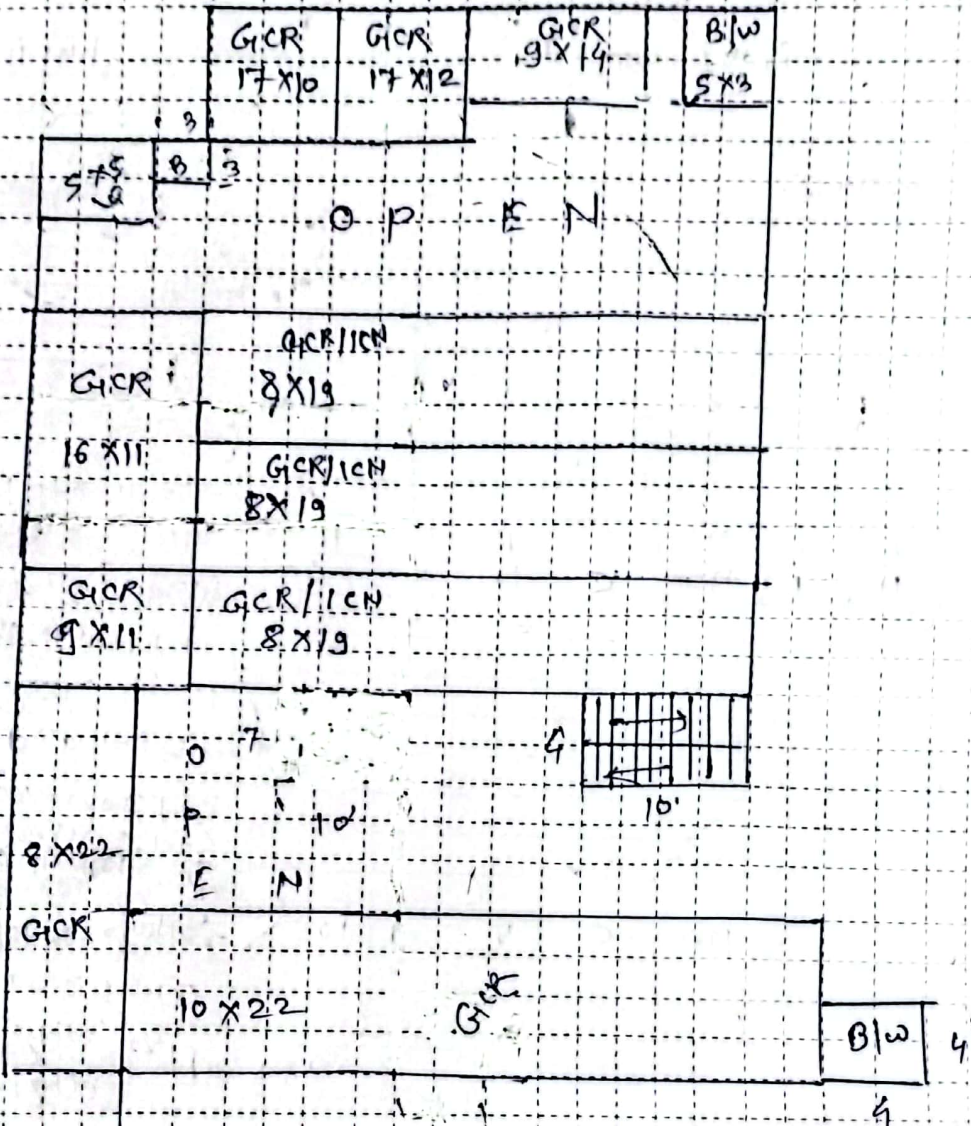 GCR
17 X 10
GCR
17 X 12
GCR
9 X 14
B/W
5 X 3
3
B
3
O P E N
GCR
16 X 11
GCR/ICN
8 X 19
GCR/ICN
8 X 19
GCR
9 X 11
GCR/ICN
8 X 19
O
P
E N
7
10'
4
10'
8 X 22
GCR
10 X 22
GCR
B/W
4
4